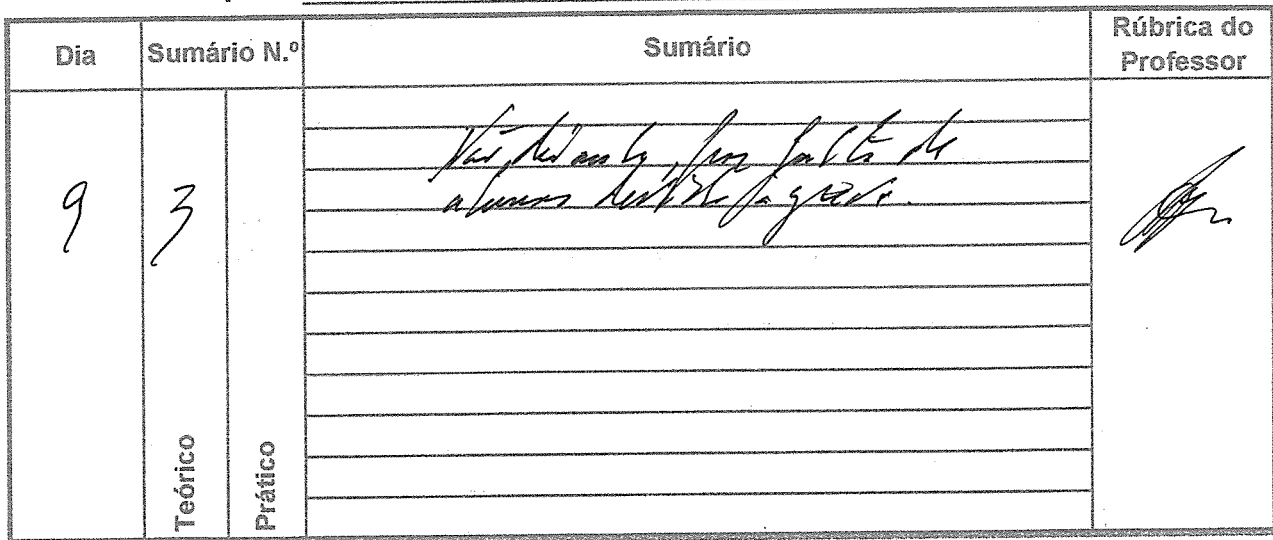 Dia
Sumário N.º
Sumário
Rúbrica do
Professor
9
3
Não houve aula, por falta de
alunos devido à greve.
Teórico
Prático